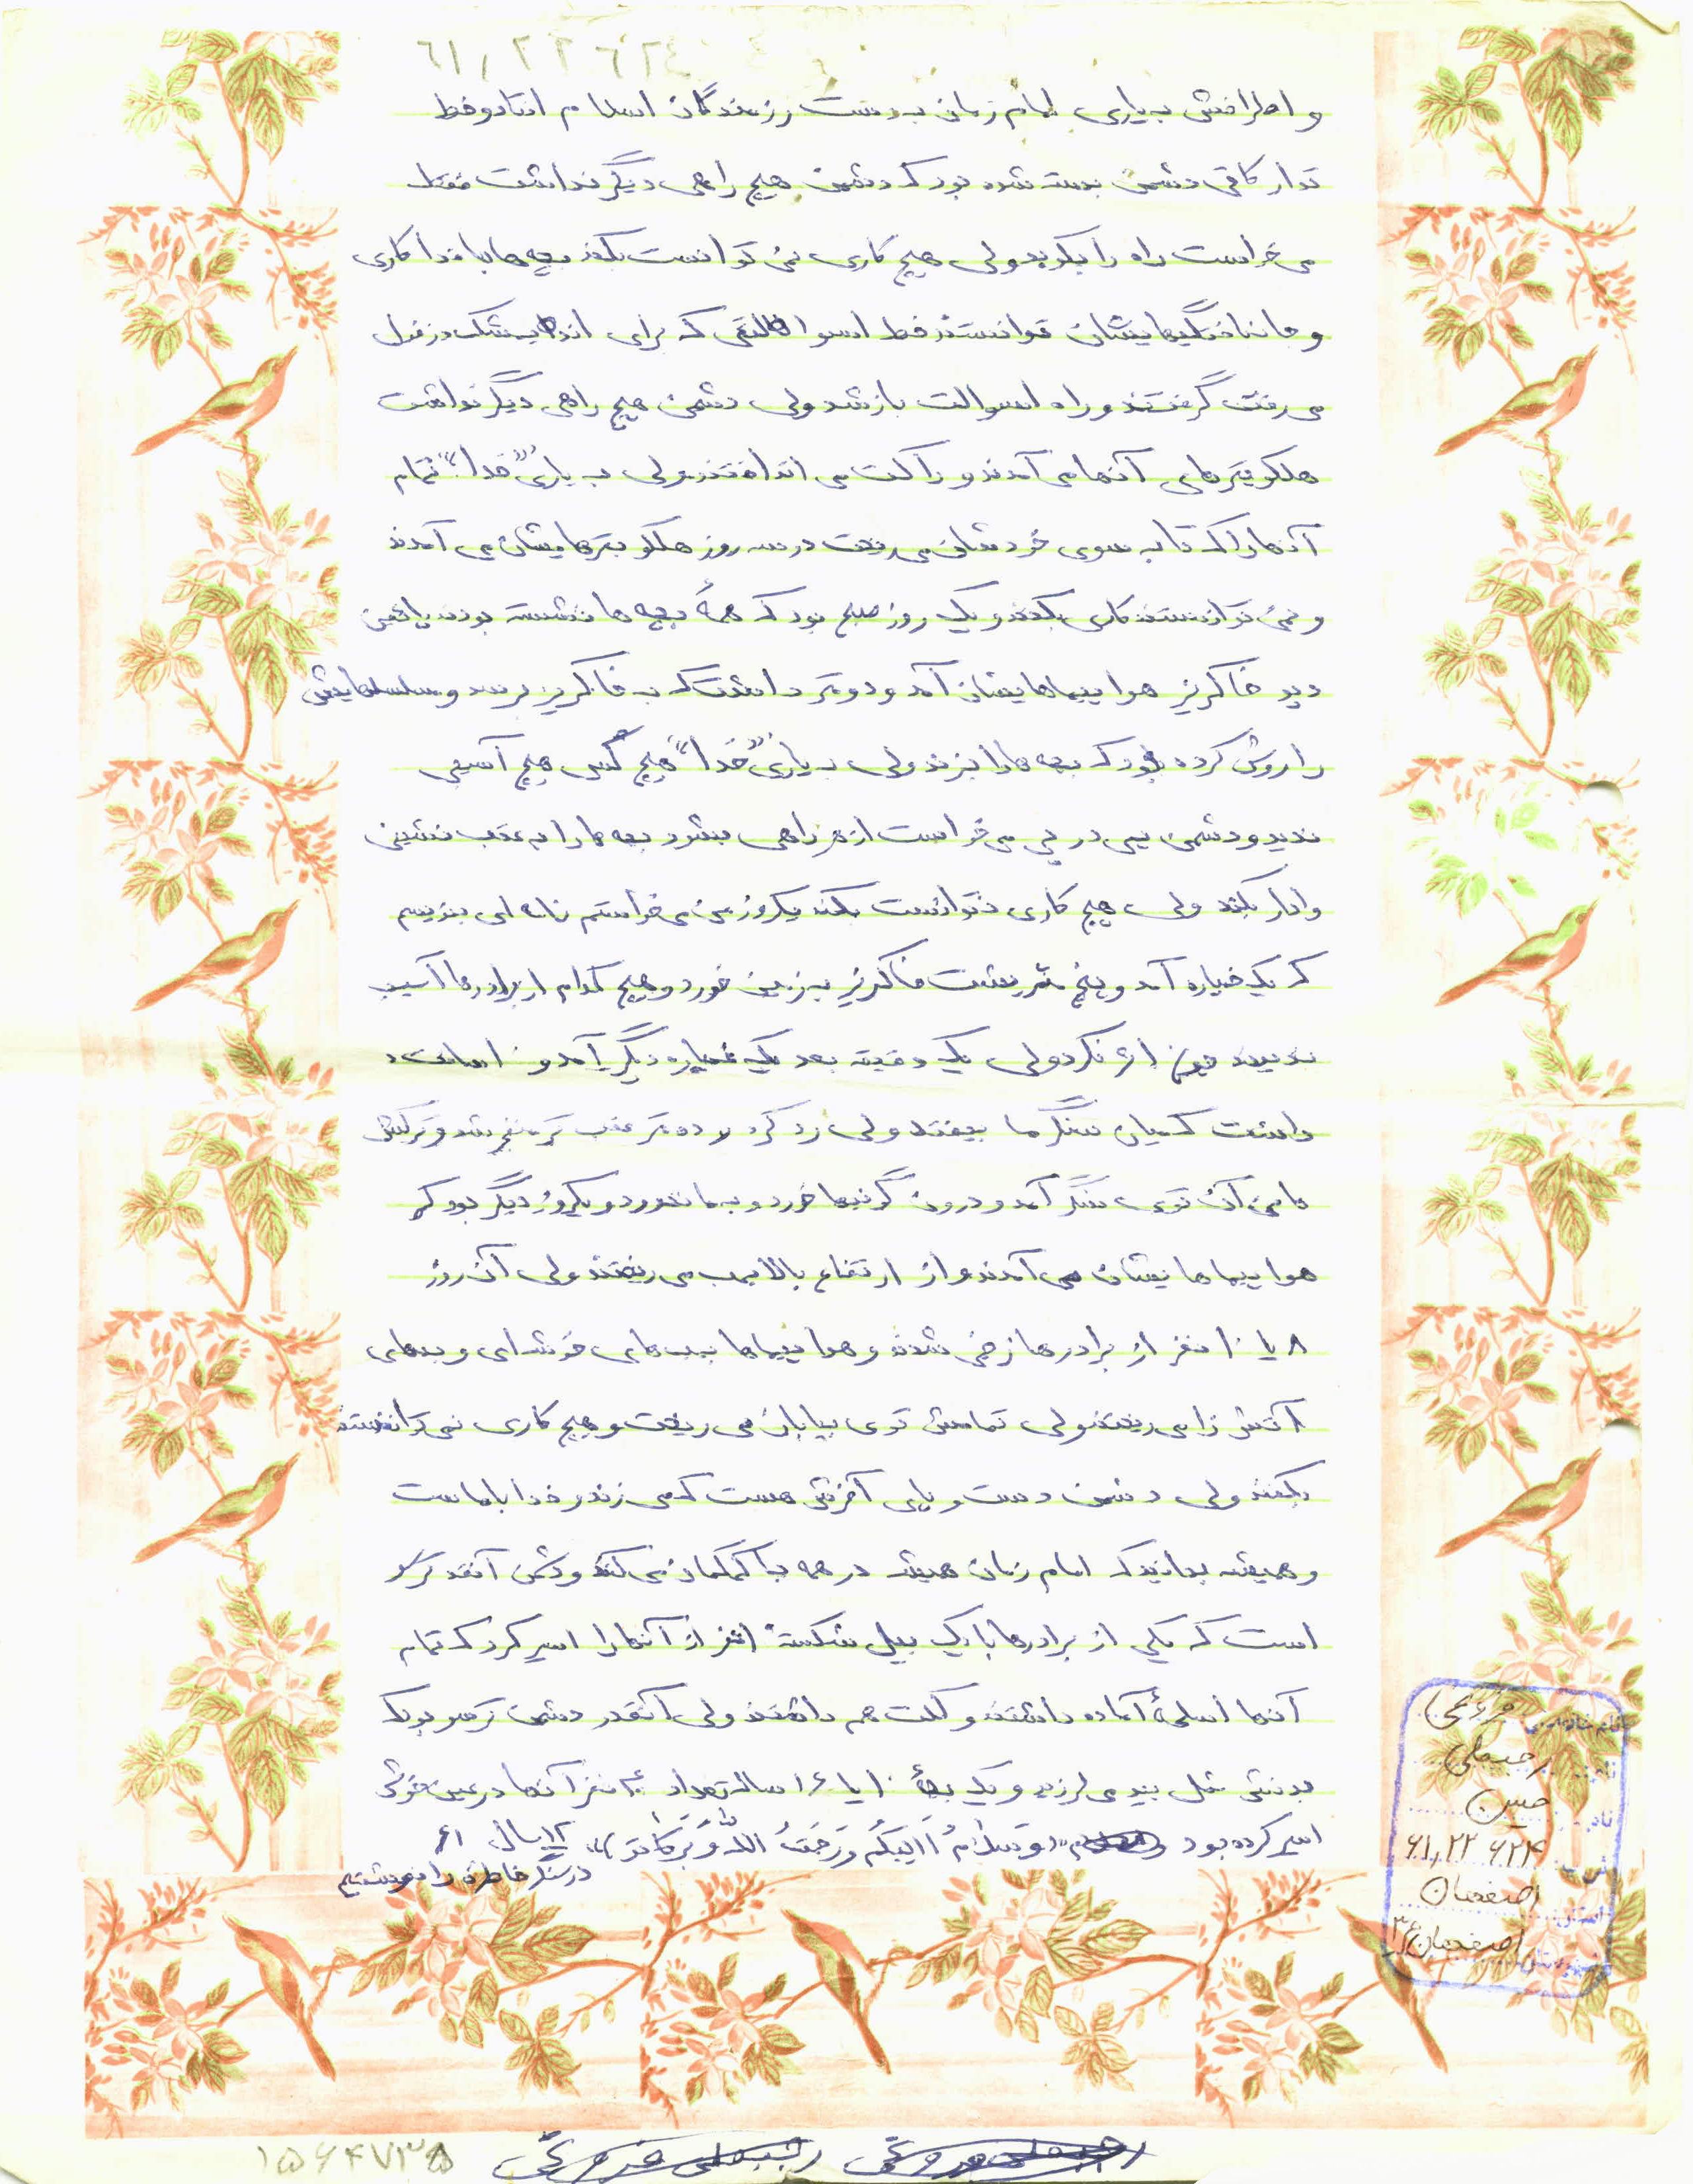 ۶۱,۲۲۶۲۴
و اطرافش به یاری امام زمان بدست رزمندگان اسلام افتاد و خط
تدارکاتی دشمن بسته شده بود که دشمن هیچ راهی دیگر نداشت فقط
می خواست راه را بگیرد ولی هیچ کاری نمی توانست بکند بچه ها با فداکاری
و جانفانگیهایشان توانستند خط که برای دزفول
می رفت گرفتند و راه باز شد ولی دشمن هیچ راهی دیگر نداشت
هلکوپترهای آنها می آمدند و راکت می انداختند ولی به یاری "خدا" تمام
آنها راکتا به سوی خودشان می رفت در سه روز هلکوپترهایشان می آمدند
و نمی توانستند کاری بکنند و یک روز صبح بود که همهٔ بچه ها نشسته بودند پائین
دید خاکریز هواپیماهایشان آمد و دو متر داشت که به خاکریز برسد و
را روشن کرده بود که بچه ها را بزند ولی به یاری "خدا" هیچ کس هیچ آسیبی
ندید و دشمن پی در پی می خواست از هر راهی بشود بچه ها را به عقب نشینی
وادار بکند ولی هیچ کاری نتوانست بکند یکروز من می خواستم نامه ای بنویسم
که یک خمپاره آمد و پنج متر پشت خاکریز به زمین خورد و هیچ کدام از برادرها آسیب
ندیدند اثر نکرد ولی یک دقیقه بعد یک خمپاره دیگر آمد و
داشت که میان سنگر ما بیفتد ولی رد کرد و ده متر عقب تر منفجر شد و ترکش
هایی آن توی سنگر آمد و درون گونیها خورد و به ما نخورد و یکروز دیگر بود که
هواپیماهایشان می آمدند و از ارتفاع بالا بمب می ریختند ولی آن روز
۸ یا ۱۰ نفر از برادرها زخمی شدند و هواپیماها بمب های خوشه ای و بمبهای
آتش زا می ریختند ولی تمامش توی بیابان می ریخت و هیچ کاری نمی توانستند
بکنند ولی دشمن دست و پای آخرش هست که می زند و خدا با ماست
و همیشه بدانید که امام زمان همیشه در همه جا کمکمان می کند و دشمن آنقدر ترسو
است که یکی از برادرها با یک بیل شکسته نفر از آنها را اسیر کرد که تمام
آنها اسلحهٔ آماده داشتند و کلت هم داشتند ولی آنقدر دشمن ترسو بود که
بدنش مثل بید می لرزید و یک بچهٔ ۱۰ یا ۱۶ ساله تعداد نفر آنها در عین خوشی
اسیر کرده بود «وَسَلامُ اَلَیکُم وَرَحمَتُ اللهُ وَبَرَکاتو» سال ۶۱
در سنگر خاطره را نوشتیم
نام خانوادگی: فروغی
نام: رجبعلی
نام پدر: حسن
۶۱,۲۲ ۶۲۴
استان: اصفهان
شهرستان: اصفهان ۳۶
رجبعلی فروغی رجبعلی فروغی
۱۵۶۴۷۳۵